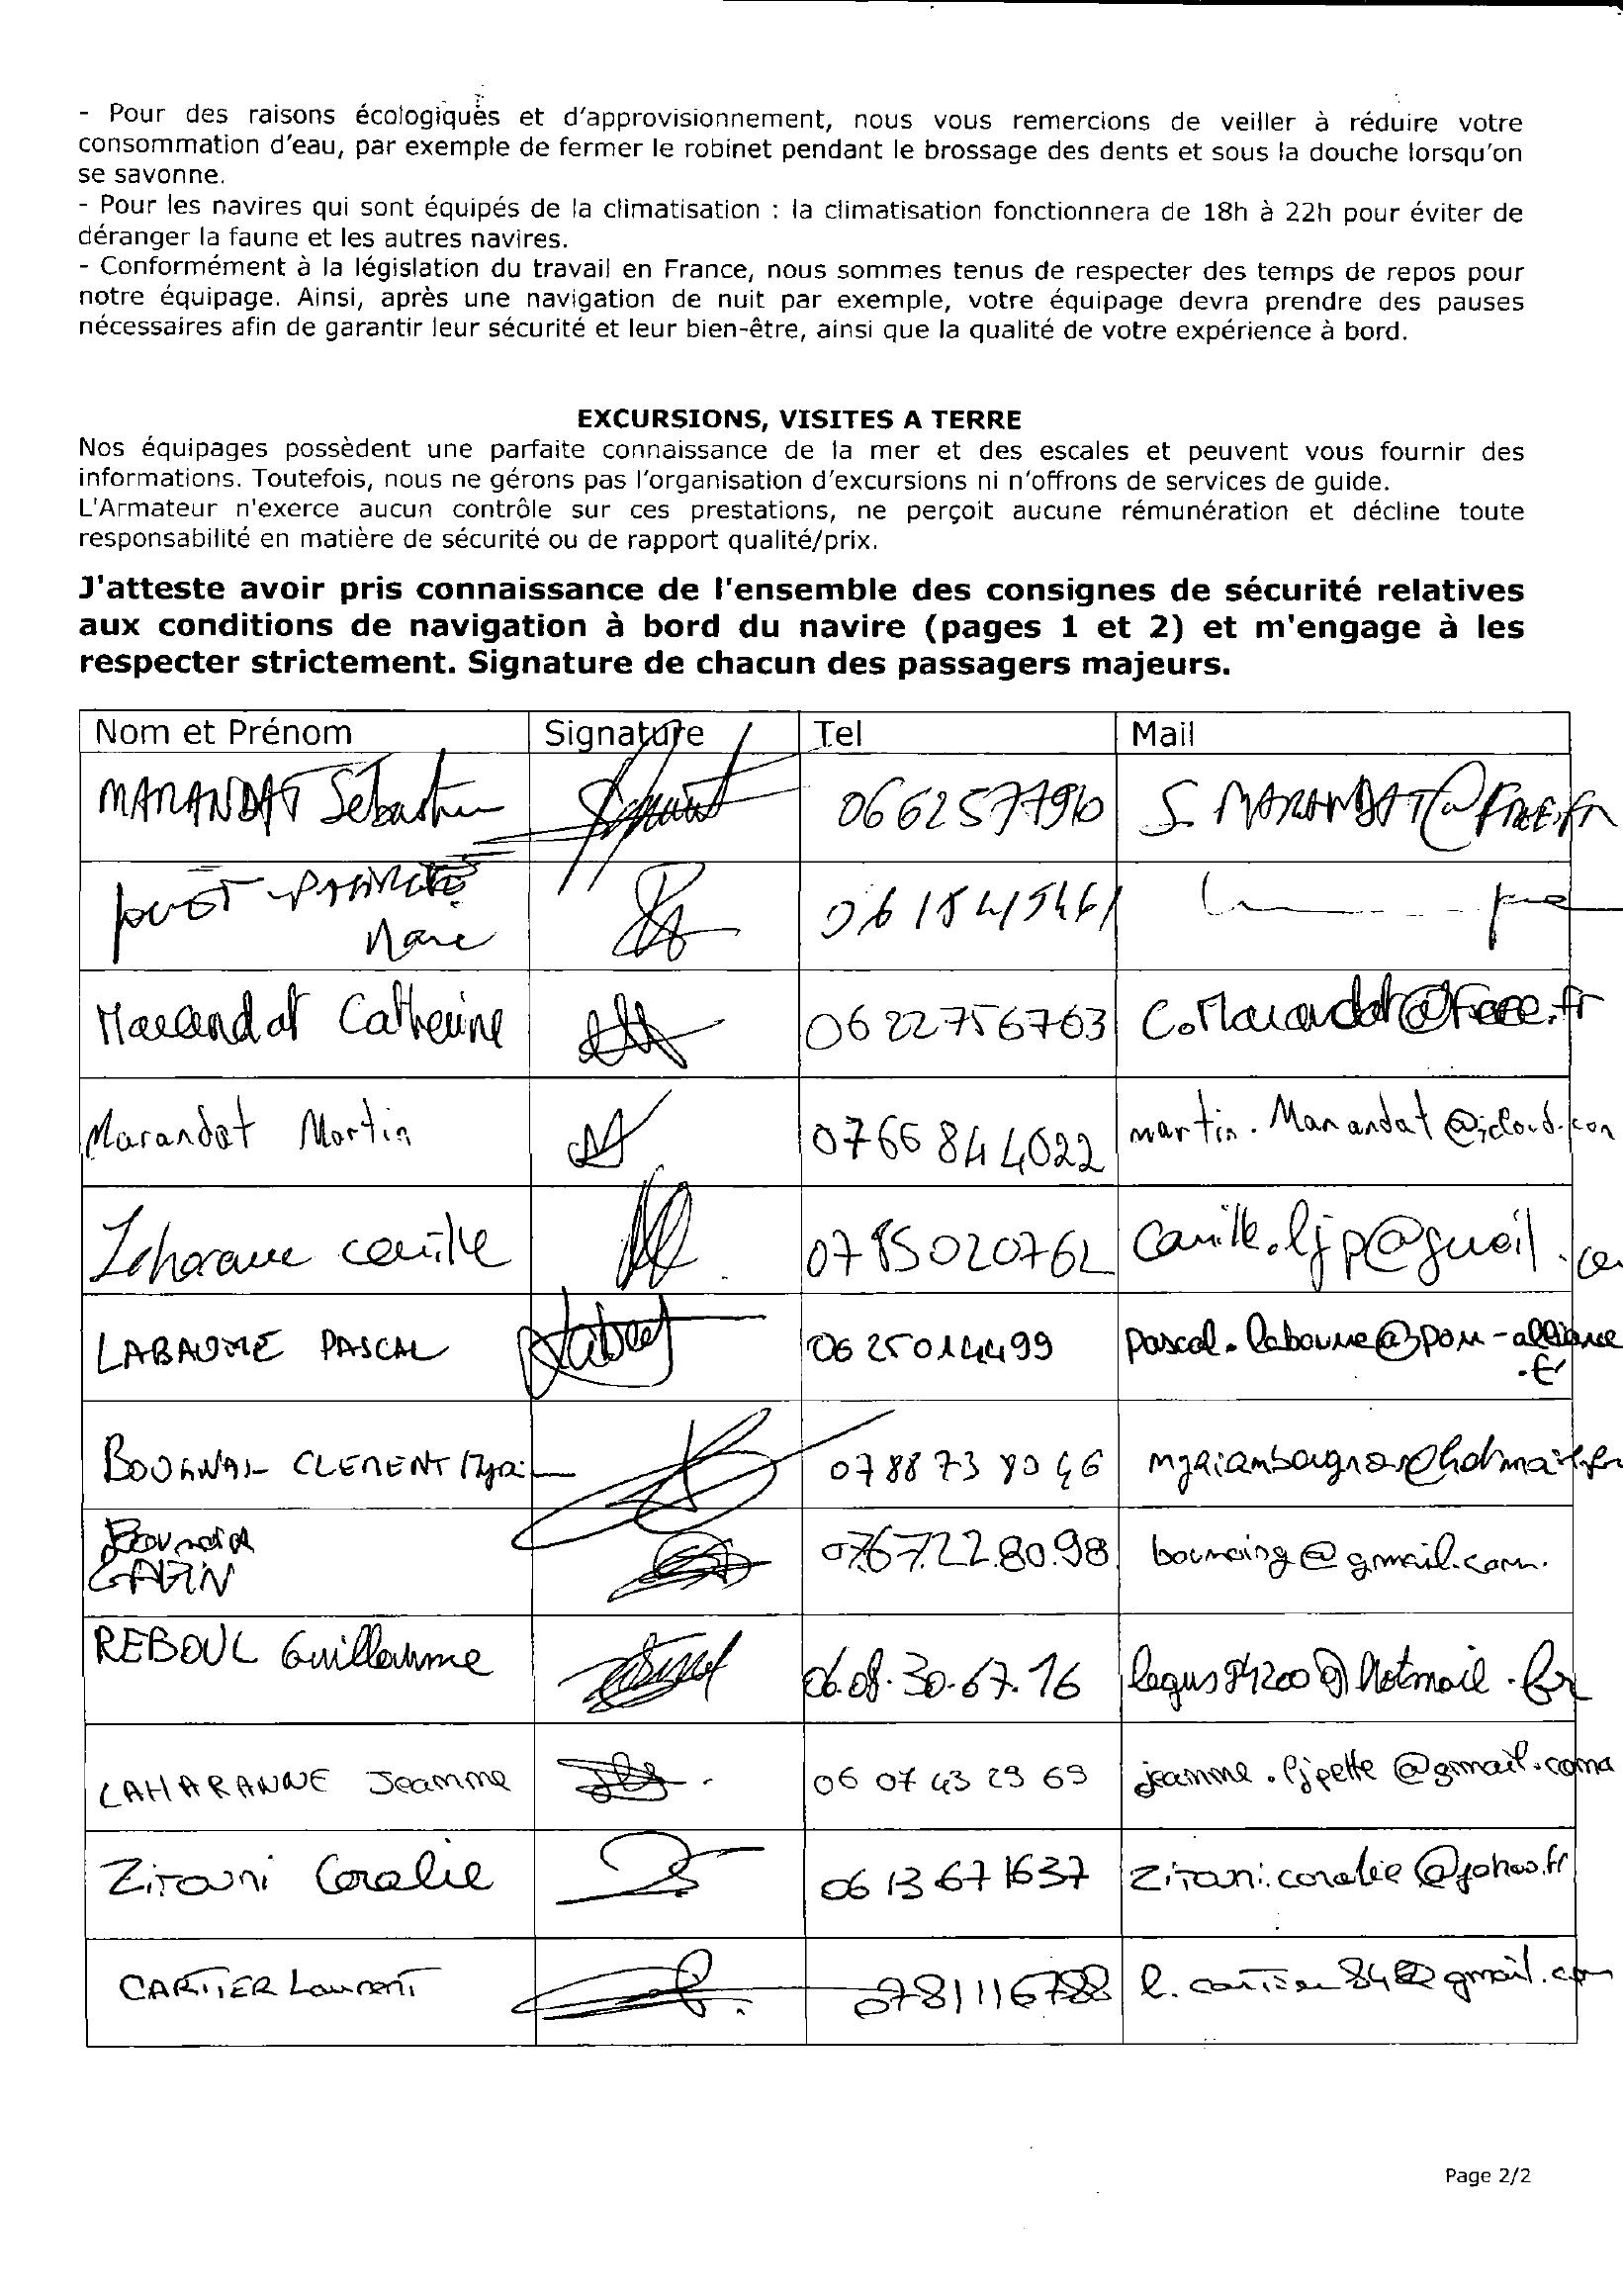 - Pour des raisons écologiques et d'approvisionnement, nous vous remercions de veiller à réduire votre
consommation d'eau, par exemple de fermer le robinet pendant le brossage des dents et sous la douche lorsqu'on
se savonne.
- Pour les navires qui sont équipés de la climatisation : la climatisation fonctionnera de 18h à 22h pour éviter de
déranger la faune et les autres navires.
- Conformément à la législation du travail en France, nous sommes tenus de respecter des temps de repos pour
notre équipage. Ainsi, après une navigation de nuit par exemple, votre équipage devra prendre des pauses
nécessaires afin de garantir leur sécurité et leur bien-être, ainsi que la qualité de votre expérience à bord.
EXCURSIONS, VISITES A TERRE
Nos équipages possèdent une parfaite connaissance de la mer et des escales et peuvent vous fournir des
informations. Toutefois, nous ne gérons pas l'organisation d'excursions ni n'offrons de services de guide.
L'Armateur n'exerce aucun contrôle sur ces prestations, ne perçoit aucune rémunération et décline toute
responsabilité en matière de sécurité ou de rapport qualité/prix.
J'atteste avoir pris connaissance de l'ensemble des consignes de sécurité relatives
aux conditions de navigation à bord du navire (pages 1 et 2) et m'engage à les
respecter strictement. Signature de chacun des passagers majeurs.
Nom et Prénom Signature Tel Mail
MARANDAT Sébastien S.MARANDAT@FREE.fr
Marc
Marandat Catherine 0622756763 C.Marandat@Free.fr
Marandat Martin 0766844022 martin.Marandat@icloud.com
camille 0785020762 Camille.ljp@gmail.com
LABAUME PASCAL 0625014499
CLEMENT 07 88 73 80 46
07.67.22.80.98
REBOUL Guillaume 06.08.30.67.16 legus84200@hotmail.fr
LAHARANNE Jeanne 06 07 43 29 69 jeanne.ljpette@gmail.com
Zitouni Coralie 06 13 67 1637
CARTIER Laurent 0781116788 l.cartier84@gmail.com
Page 2/2